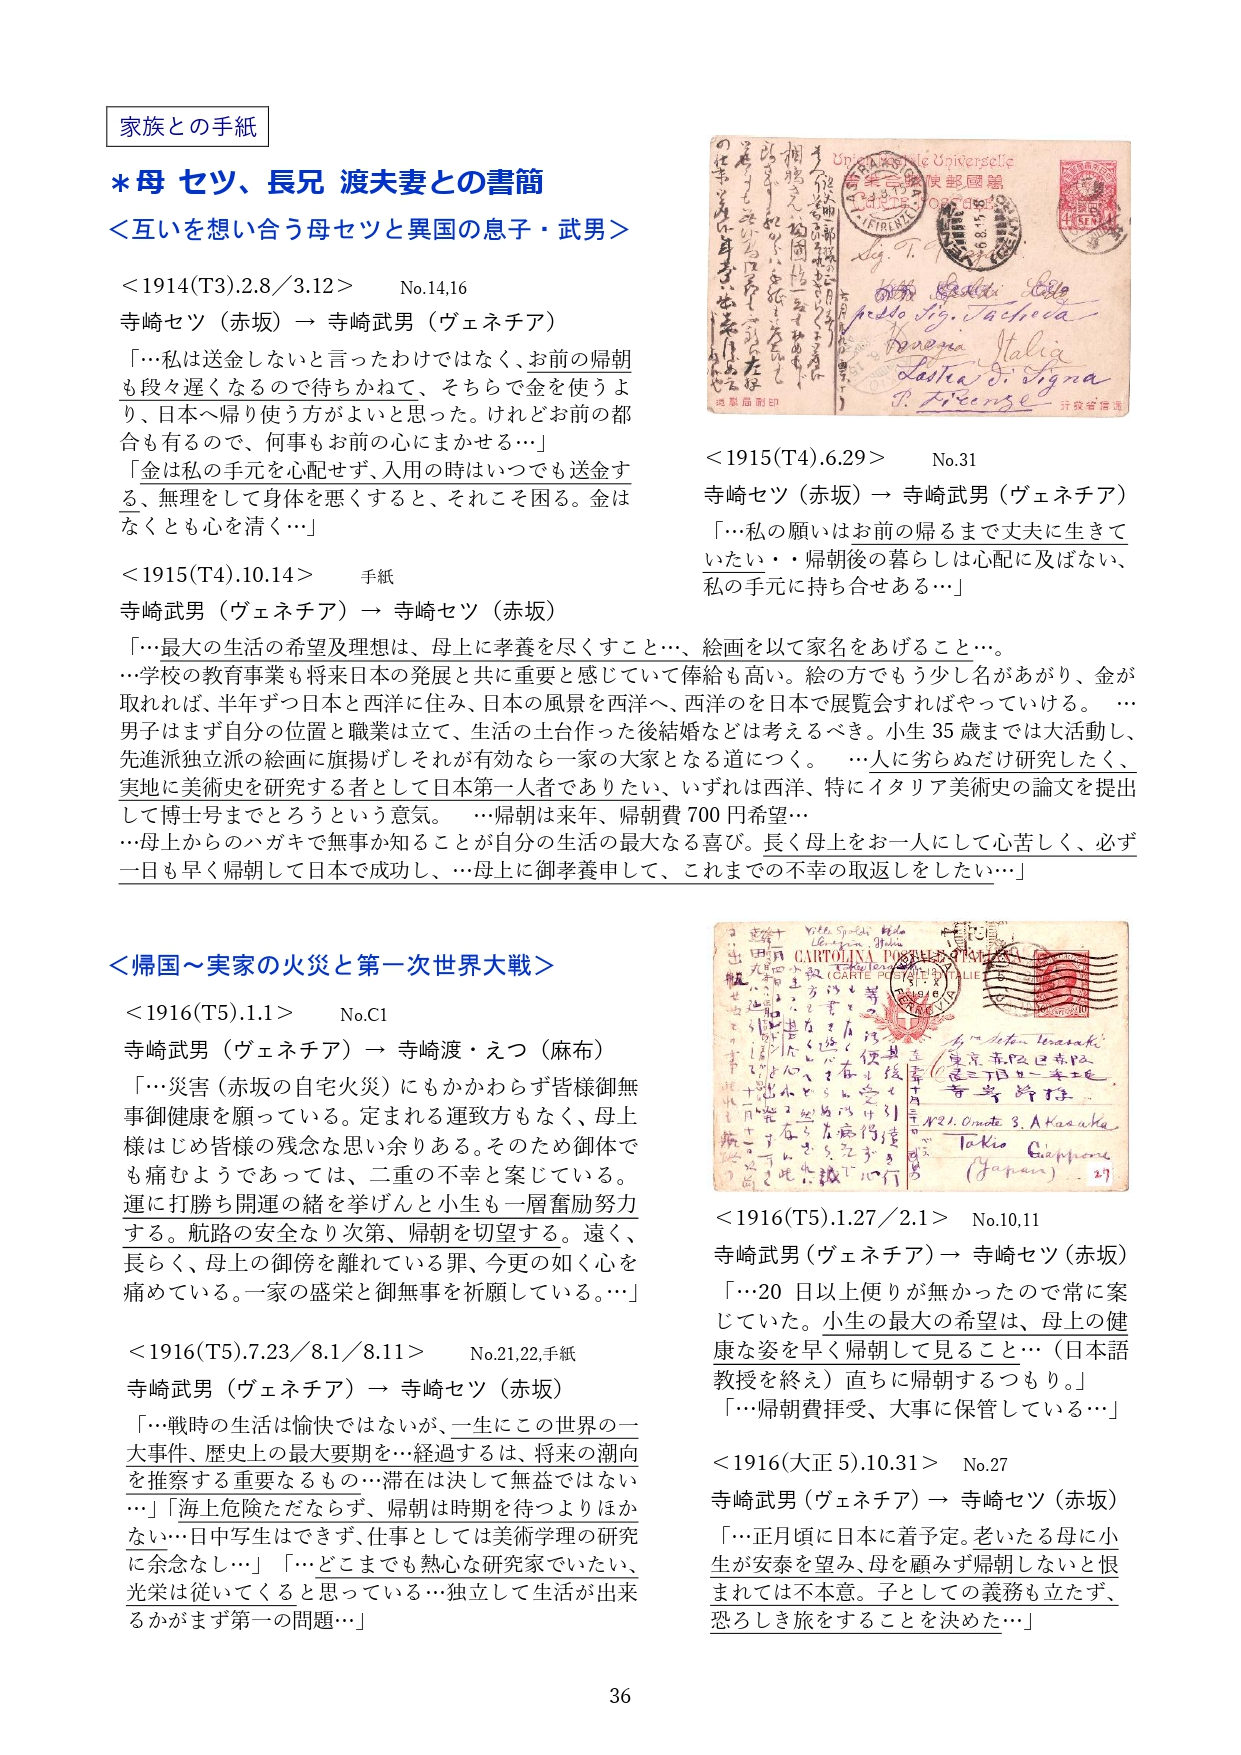 家族との手紙
＊母 セツ、長兄 渡夫妻との書簡
＜互いを想い合う母セツと異国の息子・武男＞
＜1914(T3).2.8／3.12＞ No.14,16
寺崎セツ（赤坂）→ 寺崎武男（ヴェネチア）
「…私は送金しないと言ったわけではなく､お前の帰朝
も段々遅くなるので待ちかねて、そちらで金を使うよ
り、日本へ帰り使う方がよいと思った。けれどお前の都
合も有るので、何事もお前の心にまかせる…」
「金は私の手元を心配せず､入用の時はいつでも送金す
る、無理をして身体を悪くすると、それこそ困る。金は
なくとも心を清く…」
Union Postale Universelle
CARTE POSTALE
4 SEN
presso Sig. Tacheda
Venezia Italia
Lastra di Signa
P. Firenze
＜1915(T4).6.29＞ No.31
寺崎セツ（赤坂）→ 寺崎武男（ヴェネチア）
「…私の願いはお前の帰るまで丈夫に生きて
いたい・・帰朝後の暮らしは心配に及ばない、
私の手元に持ち合せある…」
＜1915(T4).10.14＞ 手紙
寺崎武男（ヴェネチア）→ 寺崎セツ（赤坂）
「…最大の生活の希望及理想は、母上に孝養を尽くすこと…、絵画を以て家名をあげること…。
…学校の教育事業も将来日本の発展と共に重要と感じていて俸給も高い。絵の方でもう少し名があがり、金が
取れれば、半年ずつ日本と西洋に住み、日本の風景を西洋へ、西洋のを日本で展覧会すればやっていける。 …
男子はまず自分の位置と職業は立て、生活の土台作った後結婚などは考えるべき。小生 35 歳までは大活動し、
先進派独立派の絵画に旗揚げしそれが有効なら一家の大家となる道につく。 …人に劣らぬだけ研究したく、
実地に美術史を研究する者として日本第一人者でありたい、いずれは西洋、特にイタリア美術史の論文を提出
して博士号までとろうという意気。 …帰朝は来年、帰朝費 700 円希望…
…母上からのハガキで無事か知ることが自分の生活の最大なる喜び。長く母上をお一人にして心苦しく、必ず
一日も早く帰朝して日本で成功し、…母上に御孝養申して、これまでの不幸の取返しをしたい…」
＜帰国～実家の火災と第一次世界大戦＞
＜1916(T5).1.1＞ No.C1
寺崎武男（ヴェネチア）→ 寺崎渡・えつ（麻布）
「…災害（赤坂の自宅火災）にもかかわらず皆様御無
事御健康を願っている。定まれる運致方もなく、母上
様はじめ皆様の残念な思い余りある。そのため御体で
も痛むようであっては、二重の不幸と案じている。
運に打勝ち開運の緒を挙げんと小生も一層奮励努力
する。航路の安全なり次第、帰朝を切望する。遠く、
長らく、母上の御傍を離れている罪、今更の如く心を
痛めている｡一家の盛栄と御無事を祈願している｡…」
＜1916(T5).7.23／8.1／8.11＞ No.21,22,手紙
寺崎武男（ヴェネチア）→ 寺崎セツ（赤坂）
「…戦時の生活は愉快ではないが､一生にこの世界の一
大事件、歴史上の最大要期を…経過するは、将来の潮向
を推察する重要なるもの…滞在は決して無益ではない
…」「海上危険ただならず、帰朝は時期を待つよりほか
ない…日中写生はできず､仕事としては美術学理の研究
に余念なし…」「…どこまでも熱心な研究家でいたい、
光栄は従いてくると思っている…独立して生活が出来
るかがまず第一の問題…」
CARTOLINA POSTALE ITALIANA
(CARTE POSTALE D'ITALIE)
N21. Omote 3. Akasaka
Tokio Giappone
(Japan)
27
＜1916(T5).1.27／2.1＞ No.10,11
寺崎武男（ヴェネチア）→ 寺崎セツ（赤坂）
「…20 日以上便りが無かったので常に案
じていた。小生の最大の希望は、母上の健
康な姿を早く帰朝して見ること…（日本語
教授を終え）直ちに帰朝するつもり。」
「…帰朝費拝受、大事に保管している…」
＜1916(大正 5).10.31＞ No.27
寺崎武男（ヴェネチア）→ 寺崎セツ（赤坂）
「…正月頃に日本に着予定｡老いたる母に小
生が安泰を望み､母を顧みず帰朝しないと恨
まれては不本意。子としての義務も立たず、
恐ろしき旅をすることを決めた…」
36